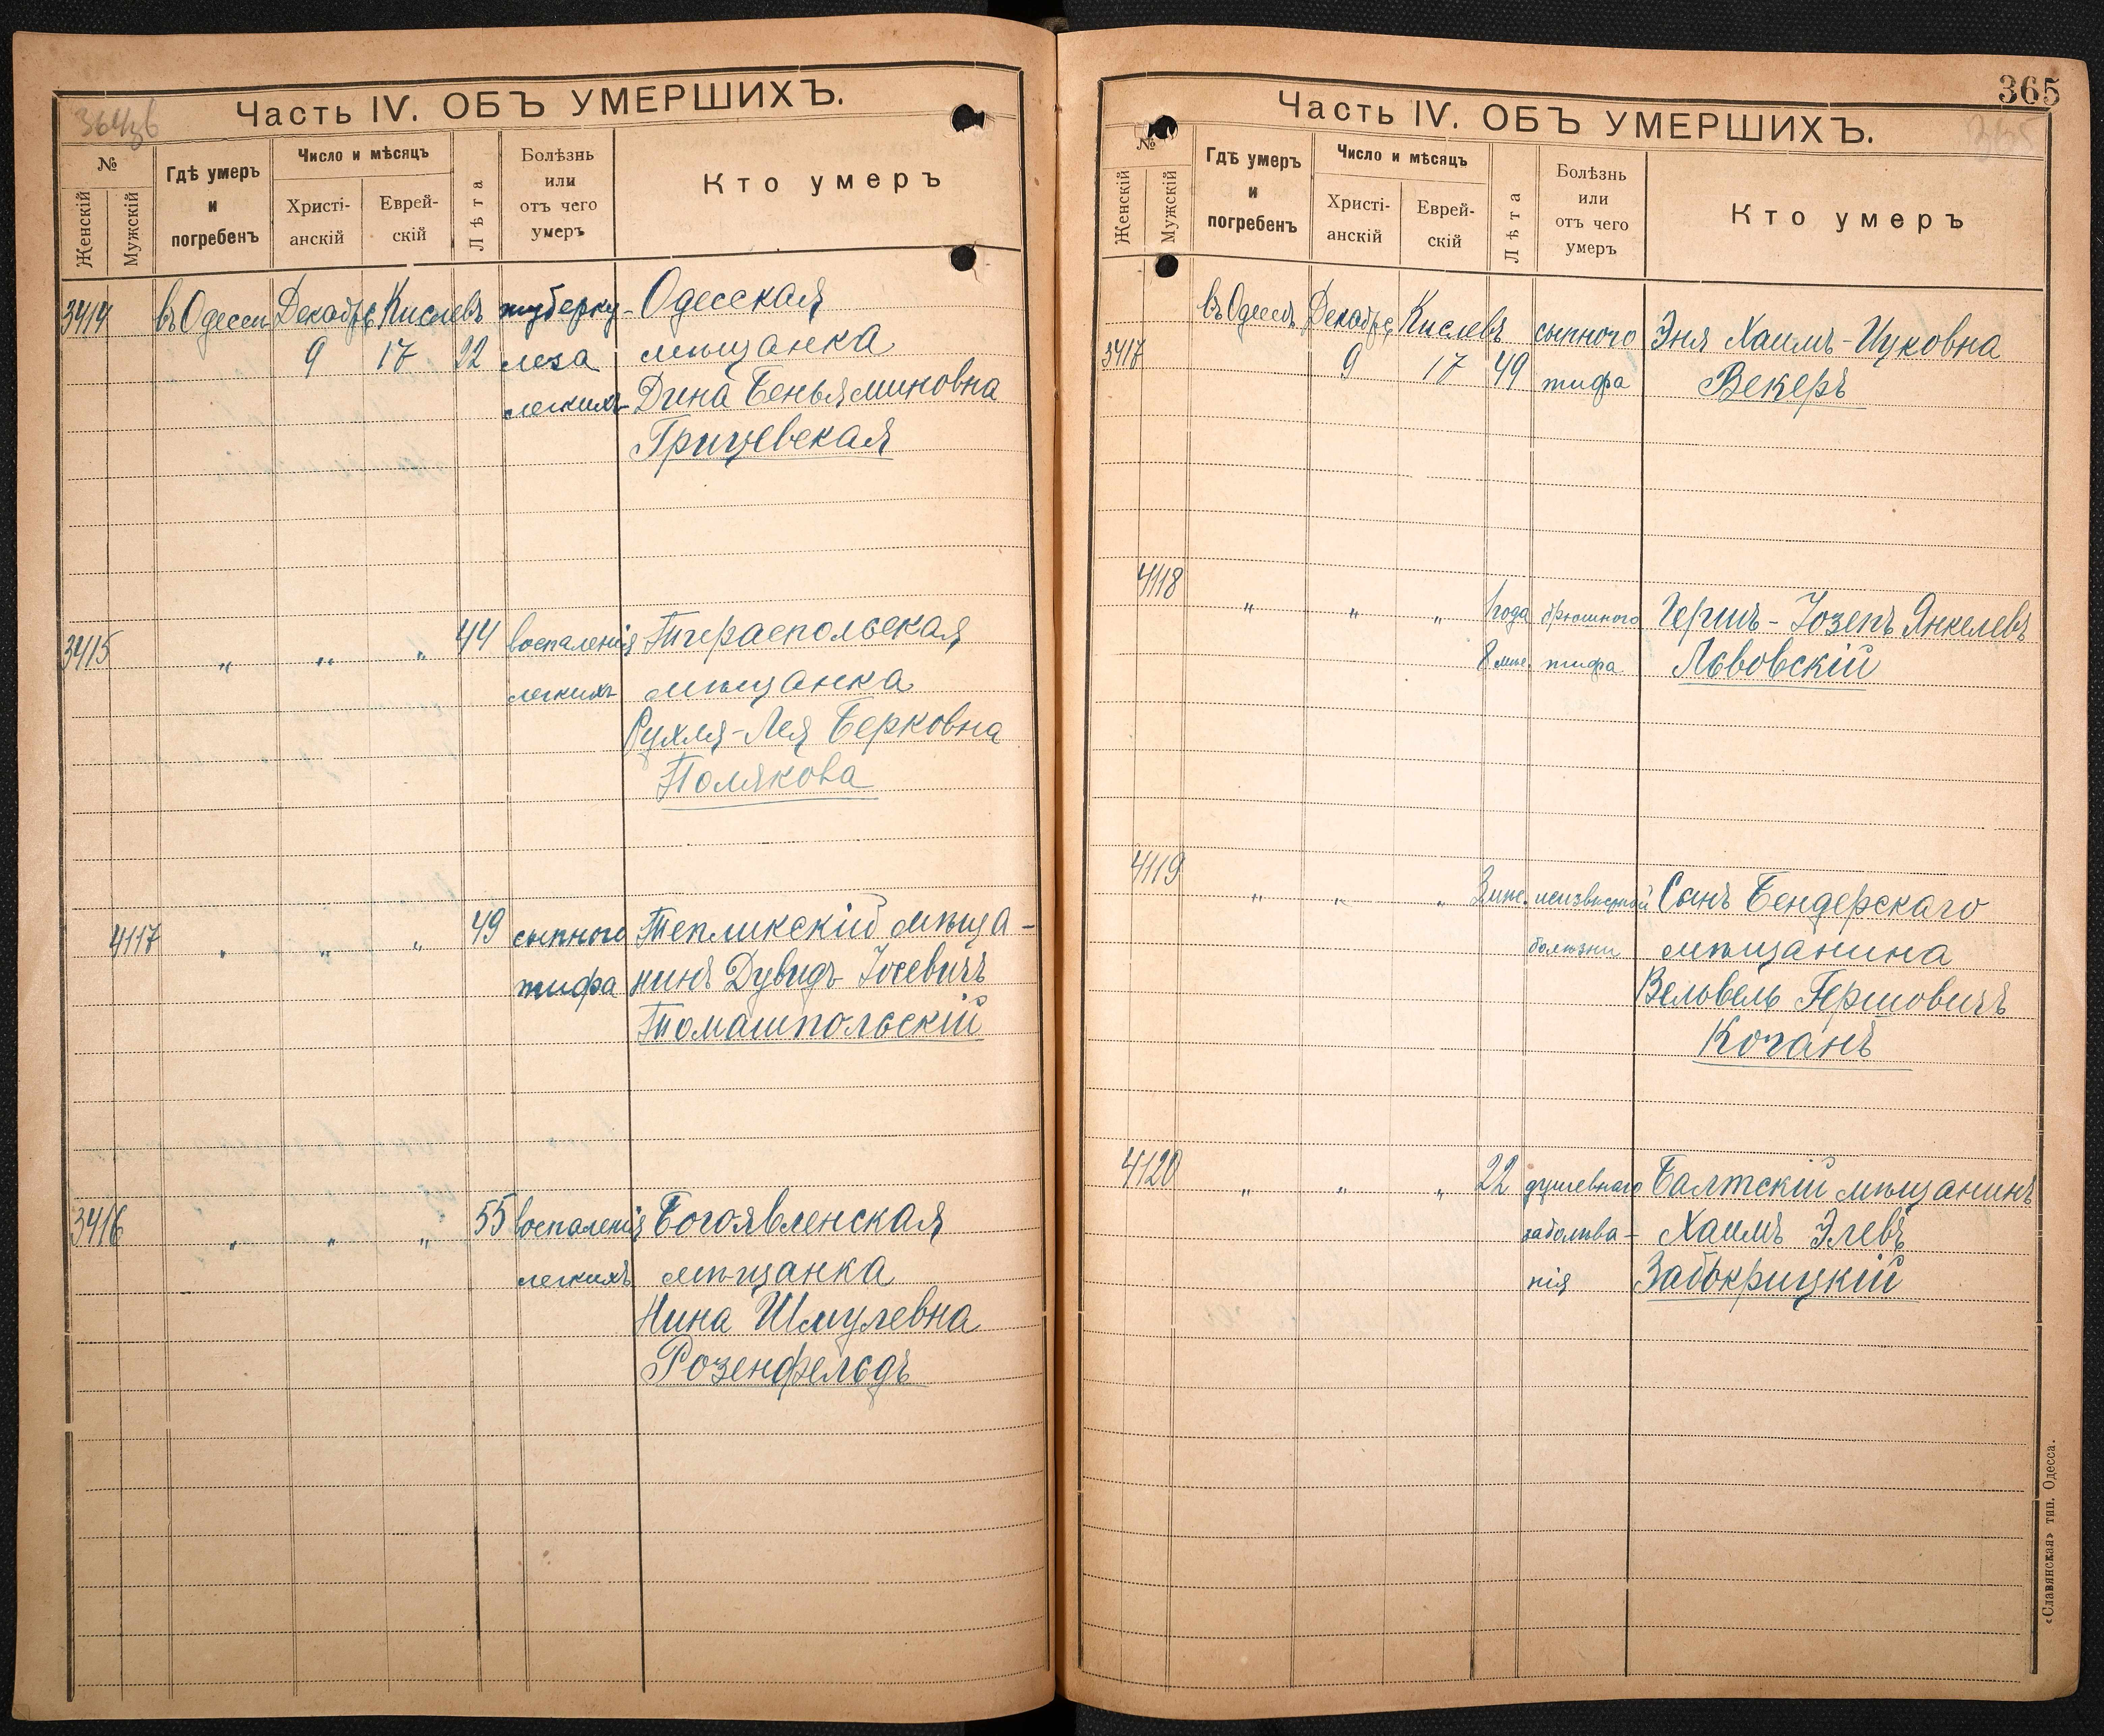 364об
Часть IV. ОБЪ УМЕРШИХЪ.
№
Женскій
Мужскій
Гдѣ умеръ
и
погребенъ
Число и мѣсяцъ
Христі-
анскій
Еврей-
скій
Лѣта
Болѣзнь
или
отъ чего
умеръ
Кто умеръ
3414 въ Одессѣ Декабрь Кислевъ туберку- Одесская
9 17 22 леза мѣщанка
легкихъ Дина Беньяминовна
Грицевская
3415 „ „ „ 44 воспаленія Тираспольская
легкихъ мѣщанка
Рухля-Лея Берковна
Полякова
4117 „ „ „ 49 сыпного Тепликскій мѣща-
тифа нинъ Дувидъ Іосевичъ
Томашпольскій
3416 „ „ „ 55 воспаленія Богоявленская
легкихъ мѣщанка
Нина Шмулевна
Розенфельдъ
365
365
Часть IV. ОБЪ УМЕРШИХЪ.
№
Женскій
Мужскій
Гдѣ умеръ
и
погребенъ
Число и мѣсяцъ
Христі-
анскій
Еврей-
скій
Лѣта
Болѣзнь
или
отъ чего
умеръ
Кто умеръ
въ Одессѣ Декабрь Кислевъ сыпного Эня Хаимъ-Ицковна
3417 9 17 49 тифа Векеръ
4118 „ „ „ 1 года брюшного Гершъ-Іозепъ Янкелевъ
8 мѣс. тифа Львовскій
4119 „ „ „ 3 мѣс. неизвѣстной Сынъ Бендерскаго
болѣзни мѣщанина
Вельвель Гершовичъ
Коганъ
4120 „ „ „ 22 душевнаго Балтскій мѣщанинъ
заболѣва- Хаимъ Элевъ
нія Забокрицкій
«Славянская» тип. Одесса.